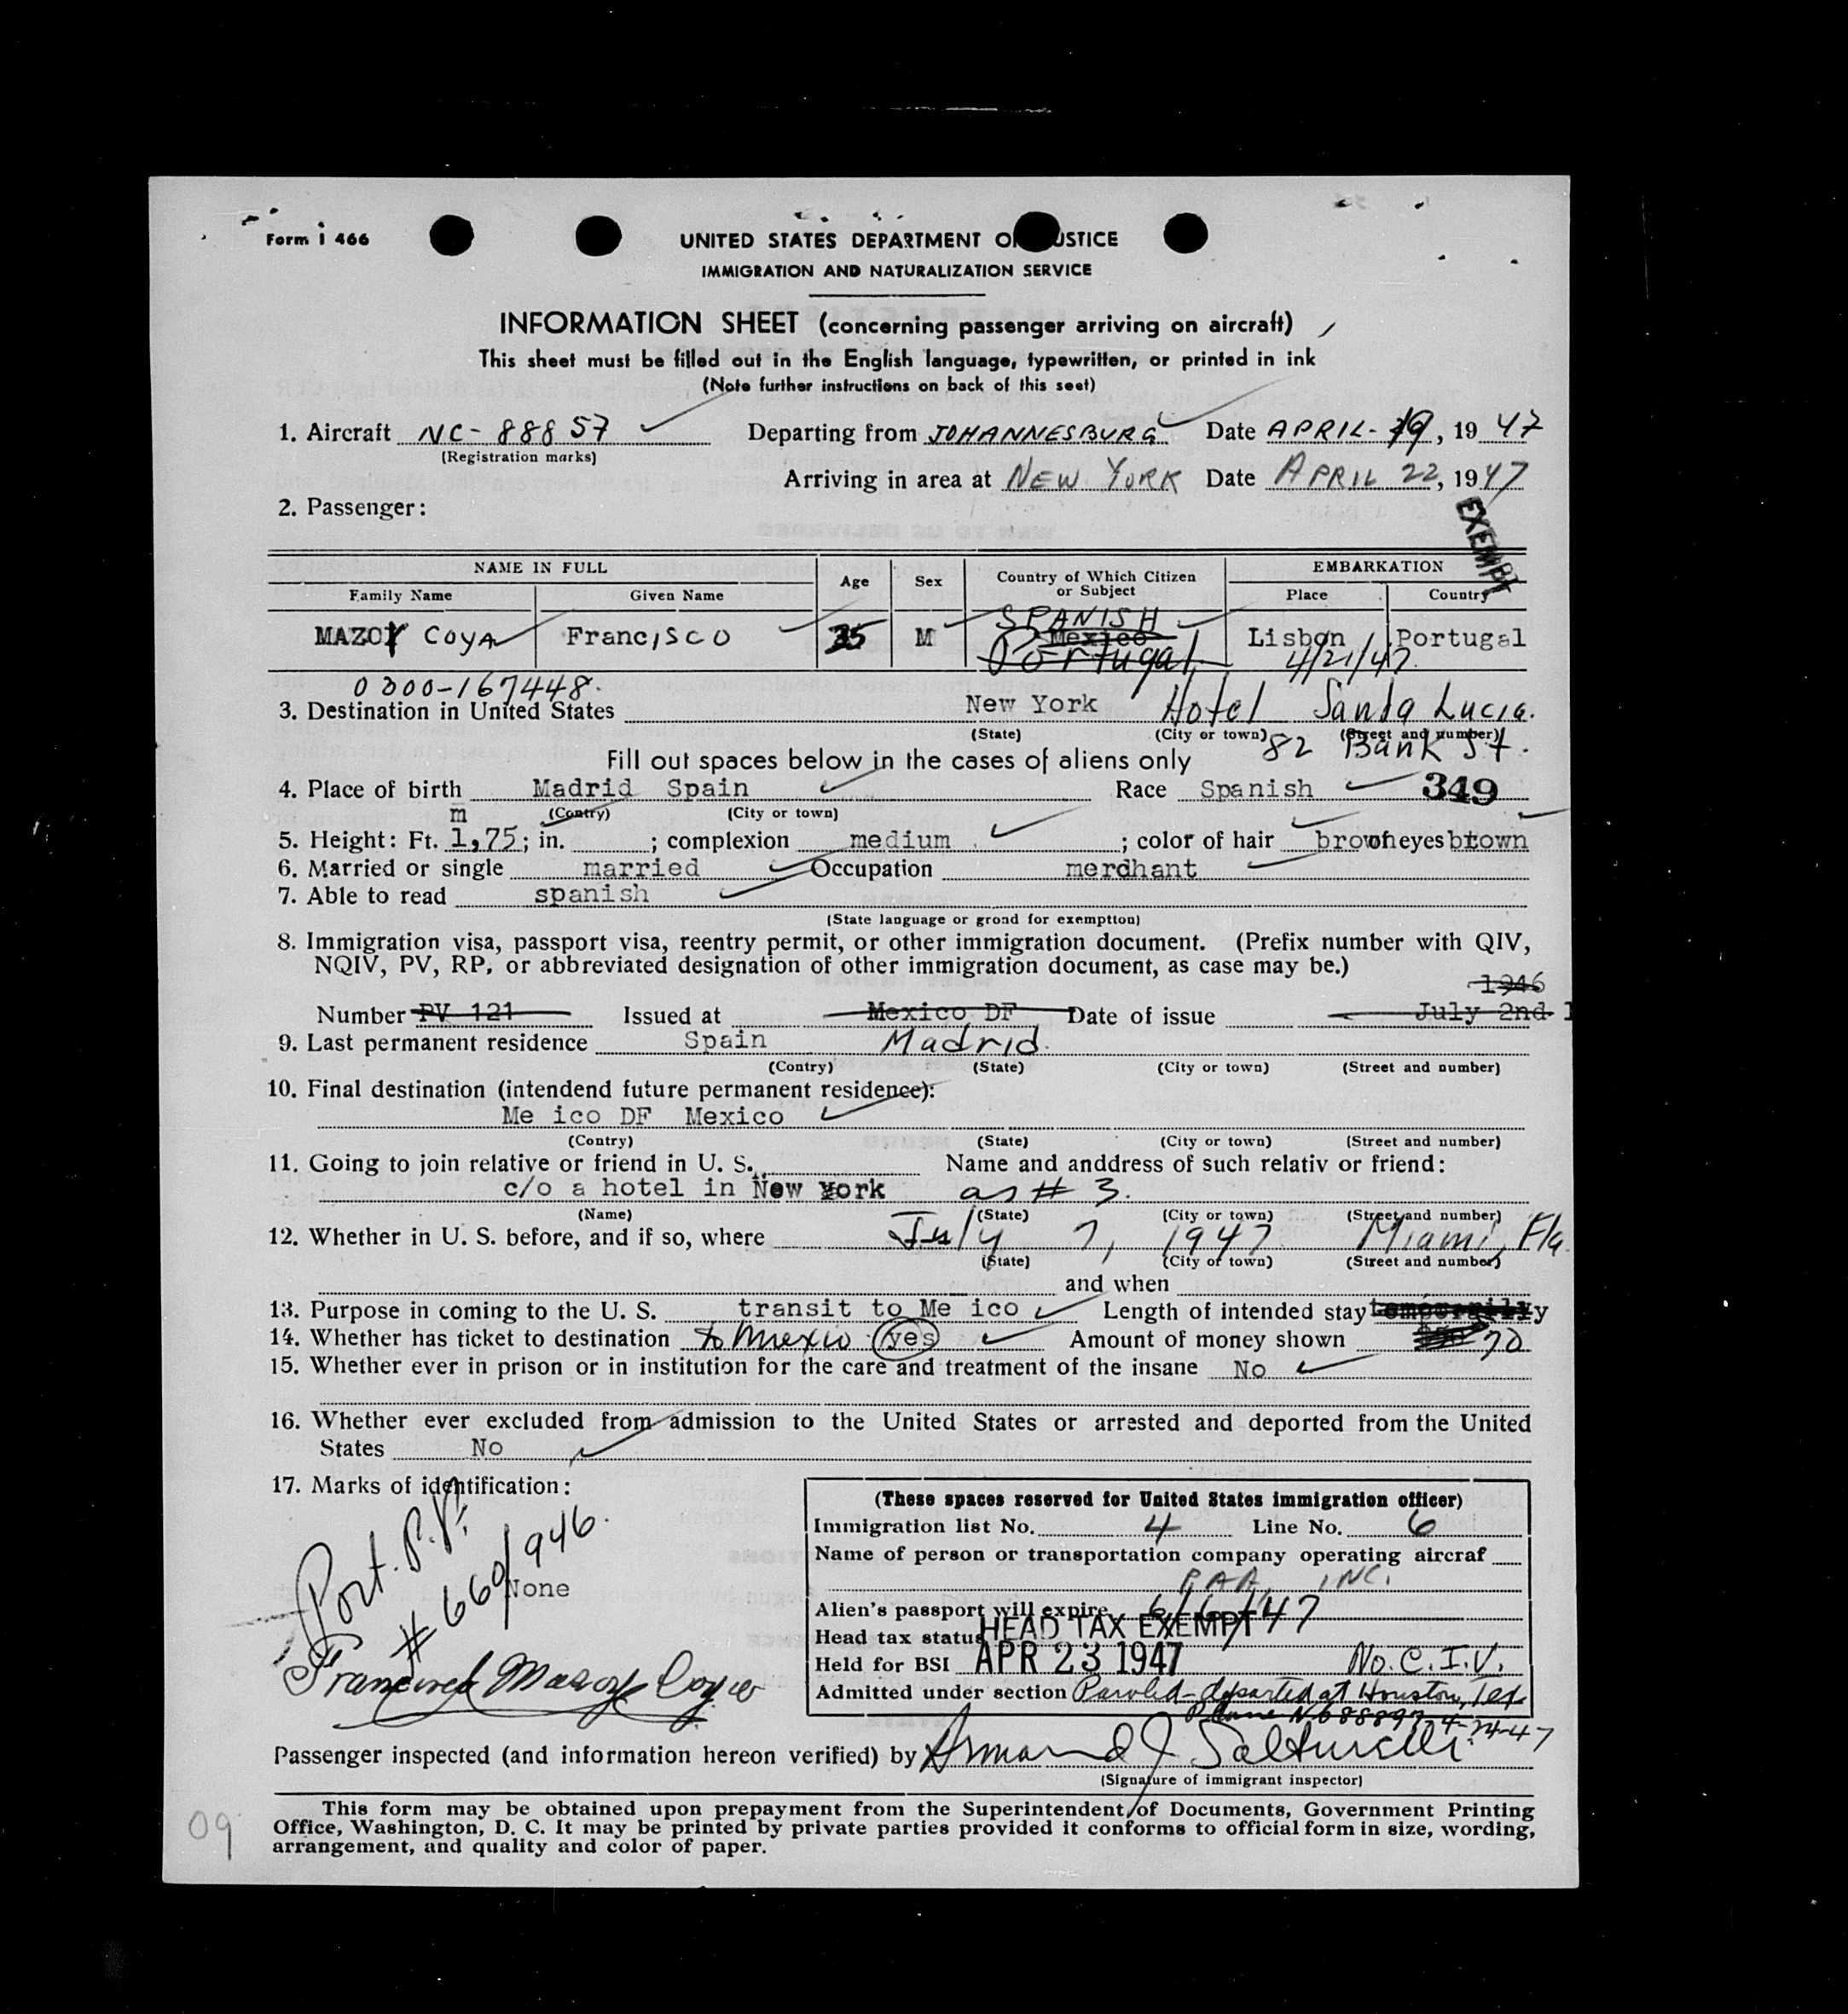 Form I 466
UNITED STATES DEPARTMENT OF JUSTICE
IMMIGRATION AND NATURALIZATION SERVICE
INFORMATION SHEET (concerning passenger arriving on aircraft)
This sheet must be filled out in the English language, typewritten, or printed in ink
(Note further instructions on back of this seet)
1. Aircraft NC-88857 Departing from JOHANNESBURG Date APRIL-19, 1947
(Registration marks)
Arriving in area at NEW YORK Date APRIL 22, 1947
2. Passenger:
EXEMPT
NAME IN FULL Age Sex Country of Which Citizen or Subject EMBARKATION
Family Name Given Name Place Country
SPANISH
MAZOY COYA FrancISCO 35 M Mexico Lisbon Portugal
Portugal 4/21/47.
0300-167448.
3. Destination in United States New York Hotel Santa Lucia.
(State) (City or town) (Street and number)
82 Bank St.
Fill out spaces below in the cases of aliens only
4. Place of birth Madrid Spain Race Spanish 349
m (Contry) (City or town)
5. Height: Ft. 1,75; in. ; complexion medium ; color of hair brown eyes brown
6. Married or single married Occupation merchant
7. Able to read spanish
(State language or grond for exemptton)
8. Immigration visa, passport visa, reentry permit, or other immigration document. (Prefix number with QIV,
NQIV, PV, RP, or abbreviated designation of other immigration document, as case may be.)
1946
Number PV 121 Issued at Mexico DF Date of issue July 2nd 1
9. Last permanent residence Spain Madrid.
(Contry) (State) (City or town) (Street and number)
10. Final destination (intendend future permanent residence):
Me ico DF Mexico
(Contry) (State) (City or town) (Street and number)
11. Going to join relative or friend in U. S. Name and anddress of such relativ or friend:
c/o a hotel in New York as # 3.
(Name) (State) (City or town) (Street and number)
12. Whether in U. S. before, and if so, where July 7, 1947 Miami, Fla.
(State) (City or town) (Street and number)
and when
13. Purpose in coming to the U. S. transit to Me ico Length of intended stay temporarilyy
14. Whether has ticket to destination to Mexico yes Amount of money shown 70
15. Whether ever in prison or in institution for the care and treatment of the insane No
16. Whether ever excluded from admission to the United States or arrested and deported from the United
States No
17. Marks of identification:
Port. P.V.
# 660/946.
None
Francisco Mazoy Coya
(These spaces reserved for United States immigration officer)
Immigration list No. 4 Line No. 6
Name of person or transportation company operating aircraf
P.A.A. INC.
Alien's passport will expire 6/6/47
Head tax status HEAD TAX EXEMPT
Held for BSI APR 23 1947 No. C.I.V.
Admitted under section Paroled-departed at Houston, Tex
Plane N688897 4-24-47
Passenger inspected (and information hereon verified) by Armand J Salturelli
(Signature of immigrant inspector)
This form may be obtained upon prepayment from the Superintendent of Documents, Government Printing
Office, Washington, D. C. It may be printed by private parties provided it conforms to official form in size, wording,
arrangement, and quality and color of paper.
09